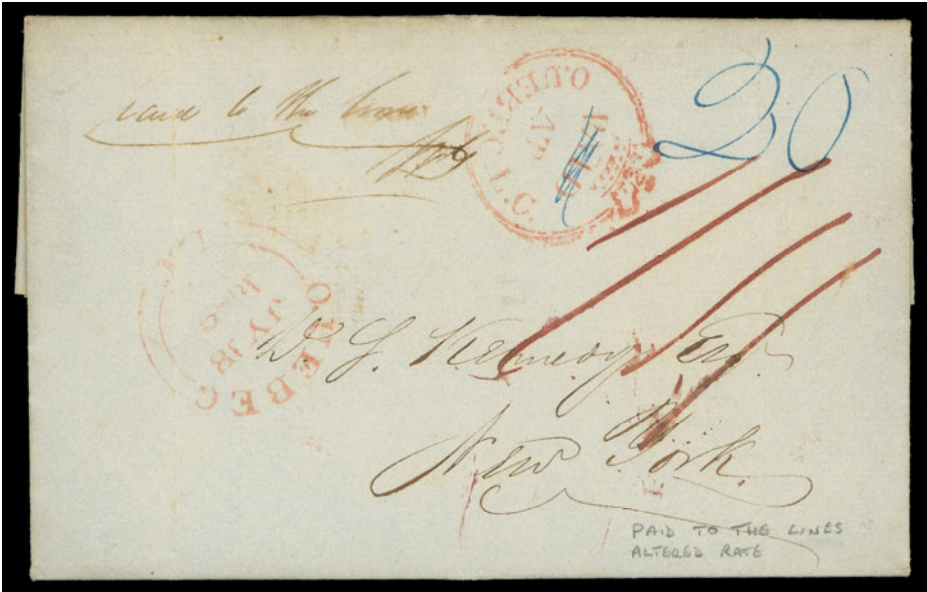 paid to the lines
20
QUEBEC L.C.
PAID
QUEBEC
JY 18
W. S. Kennedy Esqr.
New York.
PAID TO THE LINES
ALTERED RATE